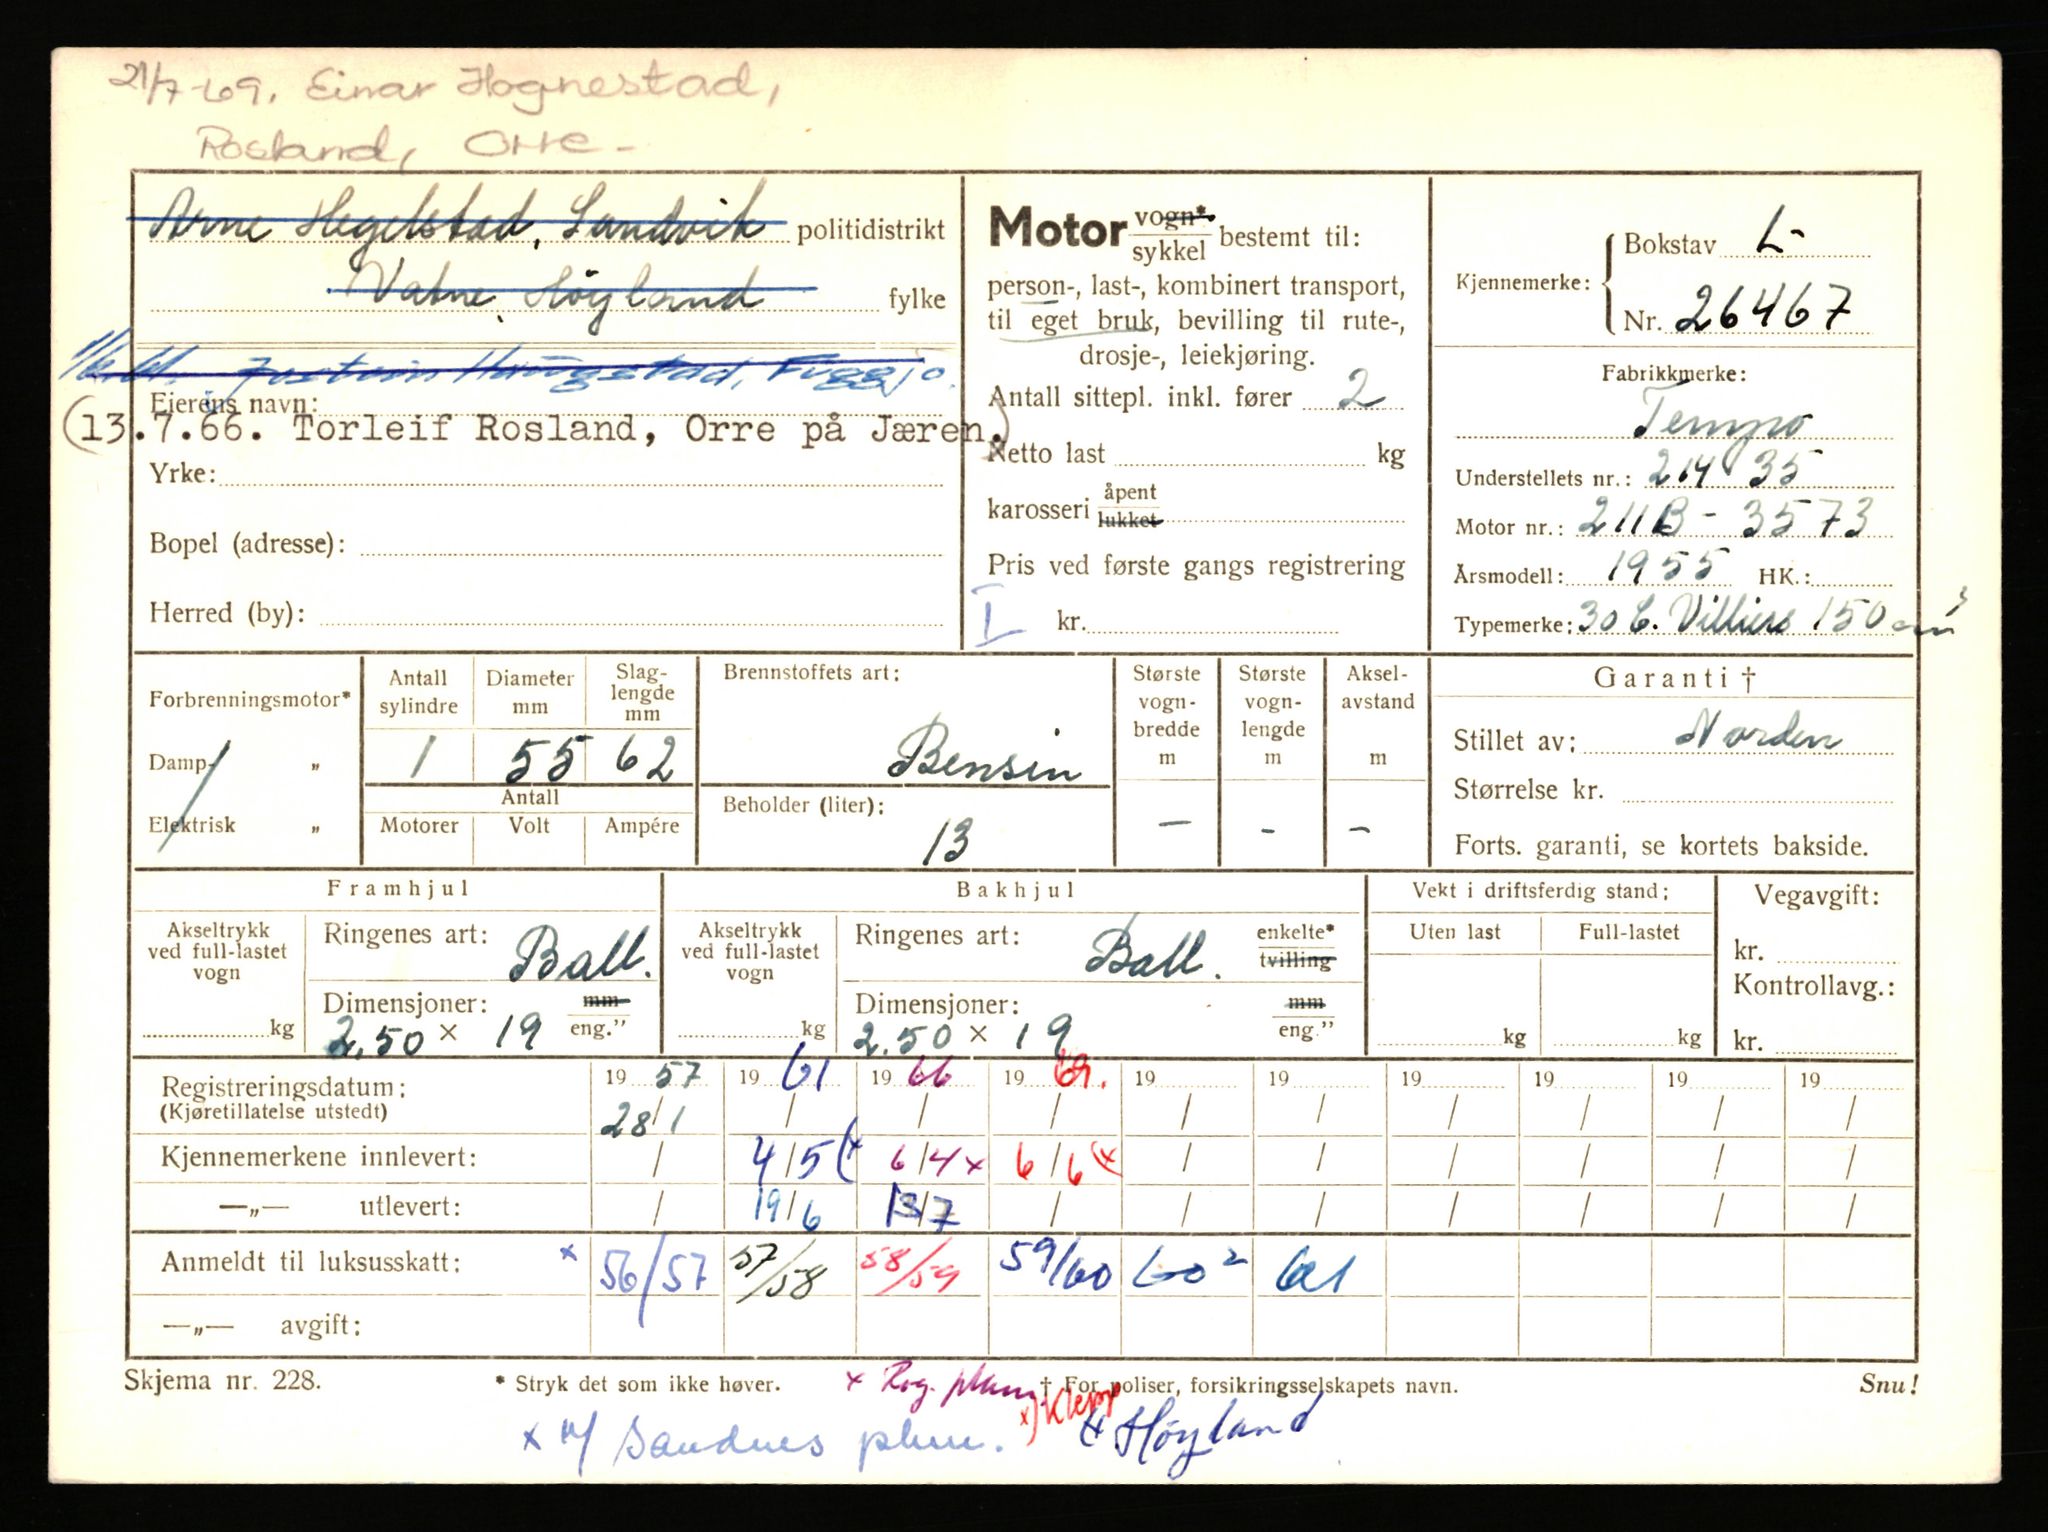 21/7-69. Einar Hognestad,
Rosland, Orre -
Arne Hegelstad, Sandvik politidistrikt
Vatne, Høyland fylke
Jostein Haugstad, Figgjo.
Eierens navn:
(13.7.66. Torleif Rosland, Orre på Jæren.)
Yrke:
Bopel (adresse):
Herred (by):
Motor vogn* / sykkel bestemt til:
person-, last-, kombinert transport,
til eget bruk, bevilling til rute-,
drosje-, leiekjøring.
Antall sittepl. inkl. fører 2
Netto last kg
karosseri åpent / lukket
Pris ved første gangs registrering
I kr.
Kjennemerke: Bokstav L-
Nr. 26467
Fabrikkmerke:
Tempo
Understellets nr.: 214 35
Motor nr.: 211B - 3573
Årsmodell: 1955 HK.:
Typemerke: 30 C. Villiers 150 cm³
Forbrenningsmotor*
Damp- „
Elektrisk „
Antall sylindre
1
Diameter mm
55
Slag-lengde mm
62
Antall
Motorer Volt Ampére
Brennstoffets art:
Bensin
Beholder (liter):
13
Største vogn-bredde m
—
Største vogn-lengde m
-
Aksel-avstand m
-
Garanti †
Stillet av: Norden
Størrelse kr.
Forts. garanti, se kortets bakside.
Framhjul
Akseltrykk ved full-lastet vogn
kg
Ringenes art: Ball.
Dimensjoner: mm / eng."
2.50 × 19
Bakhjul
Akseltrykk ved full-lastet vogn
kg
Ringenes art: Ball. enkelte* / tvilling
Dimensjoner: mm / eng."
2.50 × 19
Vekt i driftsferdig stand:
Uten last Full-lastet
kg kg
Vegavgift:
kr.
Kontrollavg.:
kr.
Registreringsdatum: 19 57 19 61 19 66 19 69. 19 19 19 19 19 19
(Kjøretillatelse utstedt) 28/1 / / / / / / / / /
Kjennemerkene innlevert: / 4/5 (x 6/4 x 6/6 (x / / / / / /
—„— utlevert: / 19/6 13/7 / / / / / / /
Anmeldt til luksusskatt: x 56/57 57/58 58/59 59/60 60² 61
—„— avgift:
Skjema nr. 228. * Stryk det som ikke høver. x Reg. † For poliser, forsikringsselskapets navn. Snu!
x) Klepp
x Sandnes (x Høyland